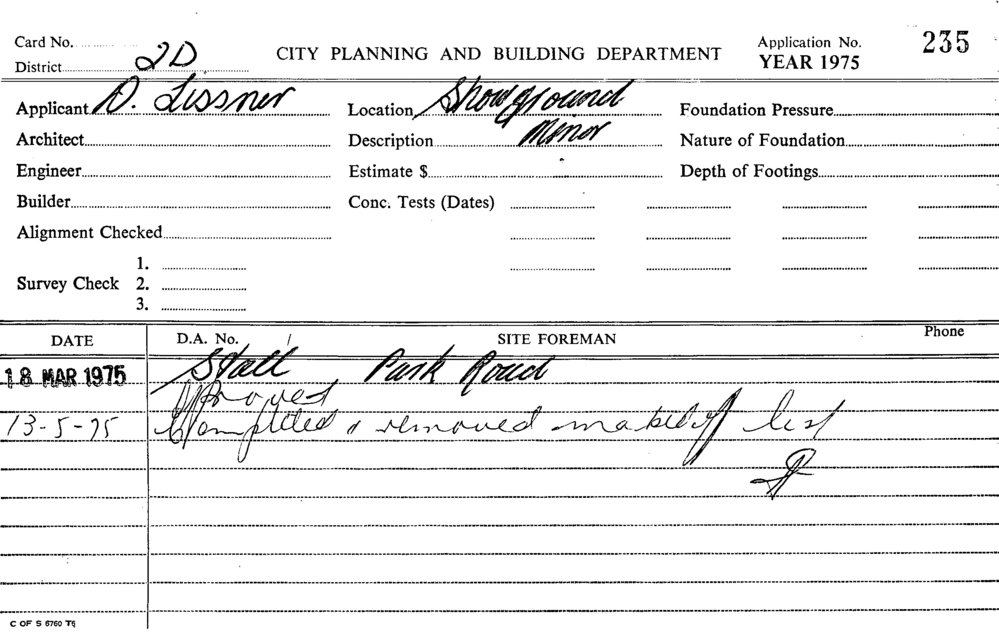 Card No. CITY PLANNING AND BUILDING DEPARTMENT Application No. 235
District 2D YEAR 1975
Applicant D. Lissner Location Showground Foundation Pressure
Architect Description Minor Nature of Foundation
Engineer Estimate $ Depth of Footings
Builder Conc. Tests (Dates)
Alignment Checked
1.
Survey Check 2.
3.
DATE D.A. No. SITE FOREMAN Phone
18 MAR 1975 Stall Park Road
Approved
13-5-75 Completed & removed marked off list
C OF S 6760 T6